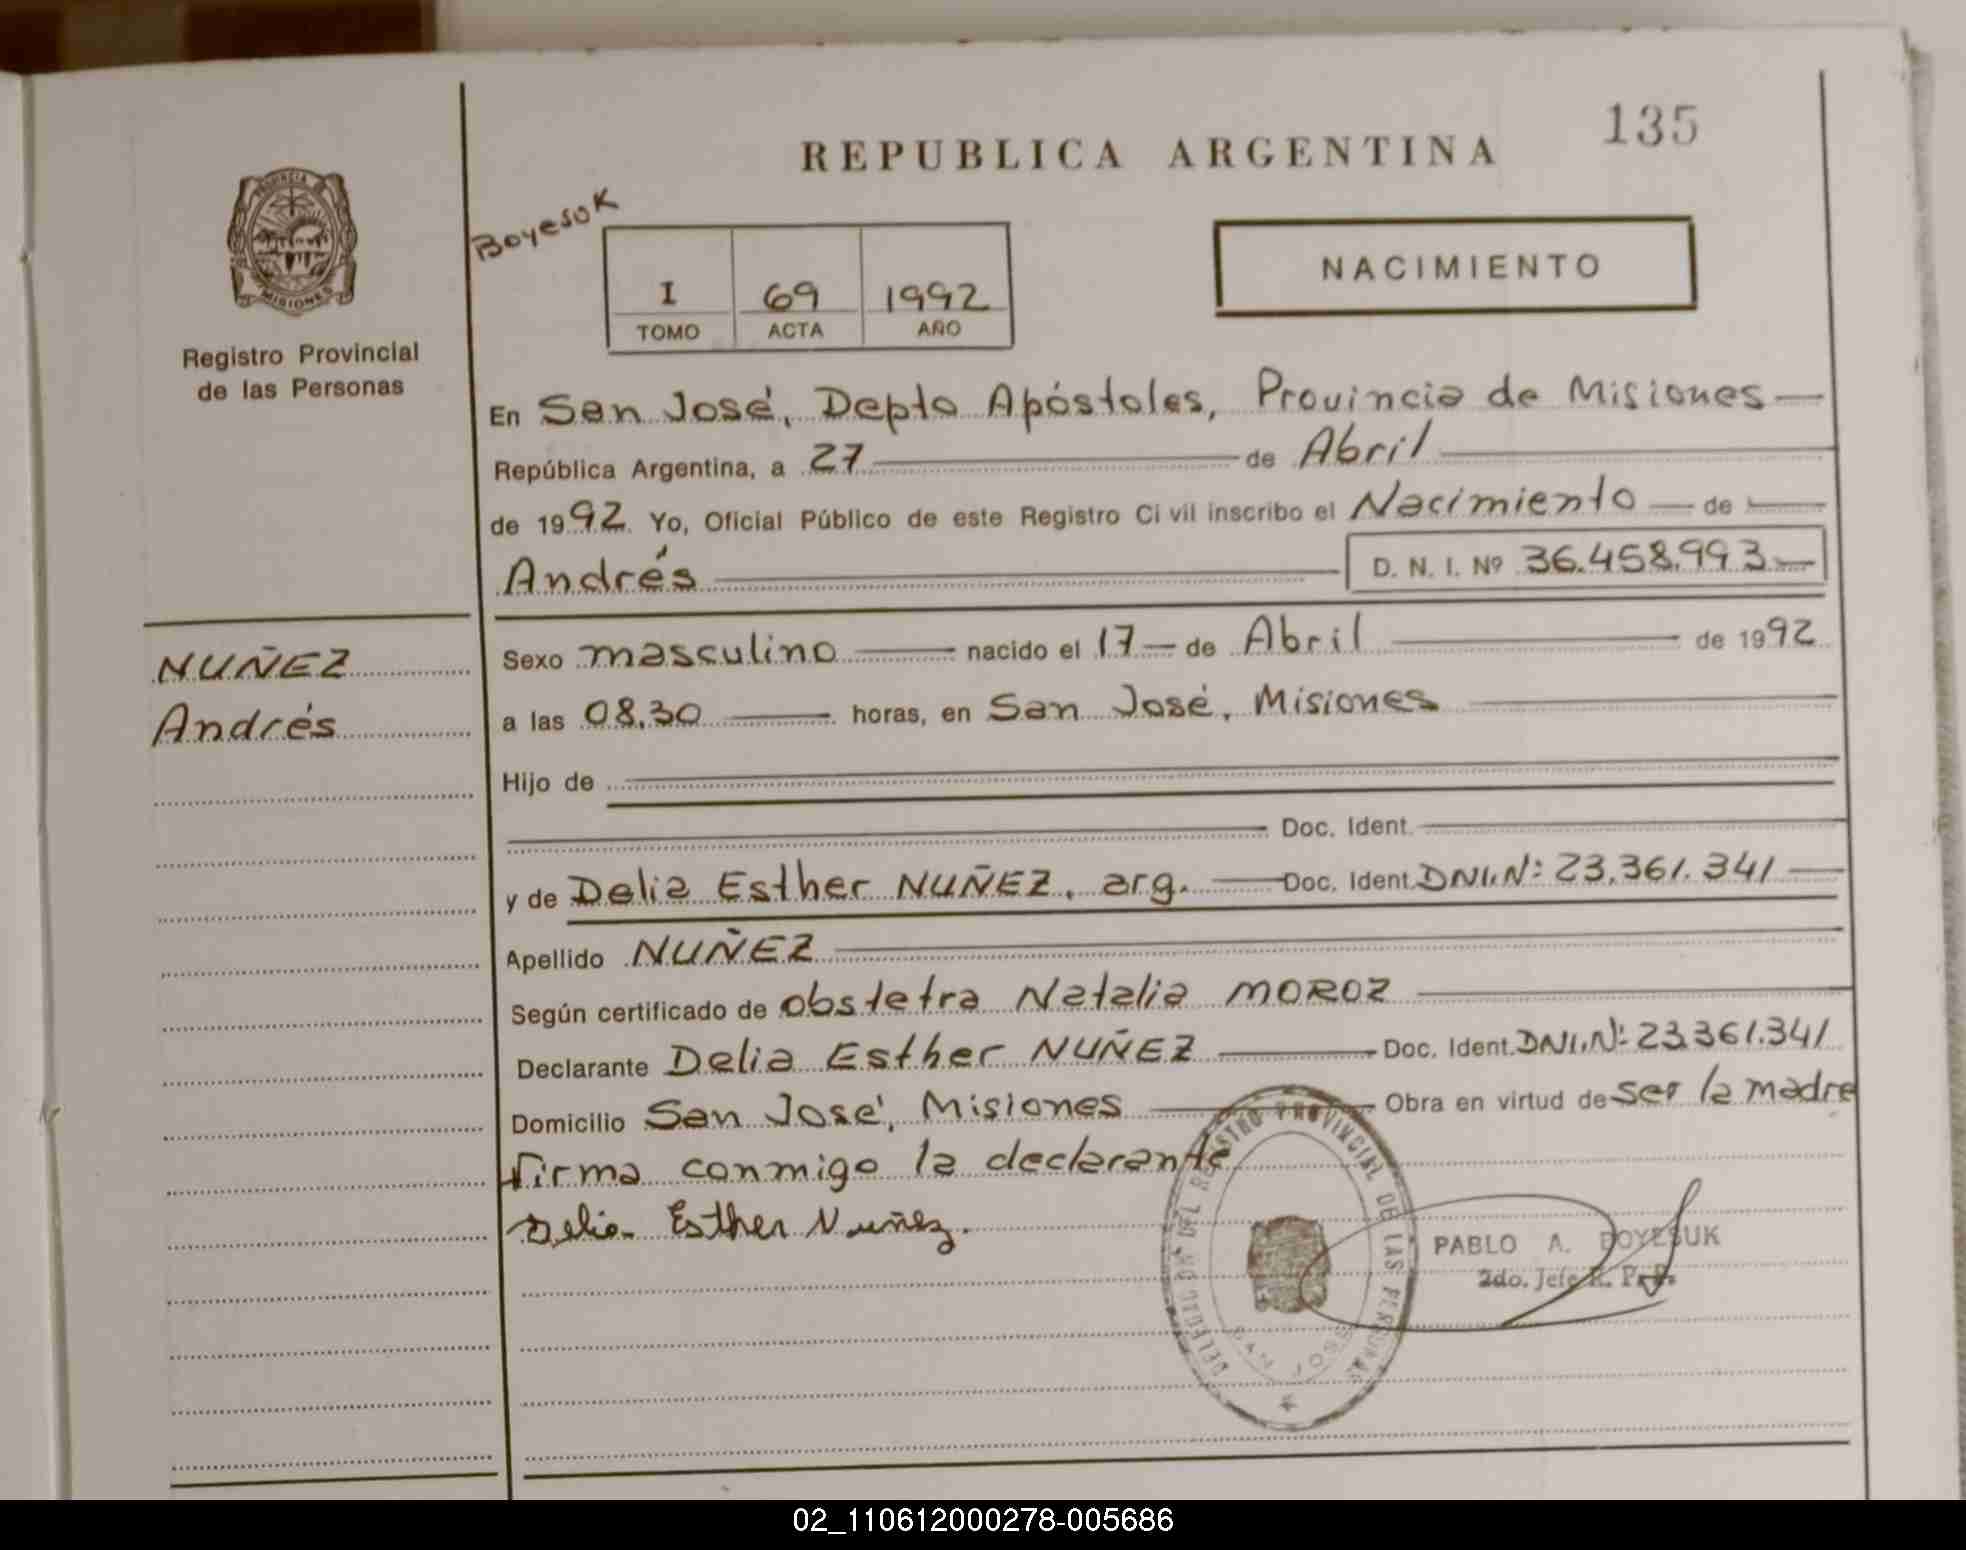 135
REPUBLICA ARGENTINA
PROVINCIA D
MISIONES
Registro Provincial
de las Personas
Boyesuk
NACIMIENTO
I 69 1992
TOMO ACTA AÑO
En San José, Depto Apóstoles, Provincia de Misiones
República Argentina, a 27 de Abril
de 1992 Yo, Oficial Público de este Registro Civil inscribo el Nacimiento de
Andrés D. N. I. Nº 36.458.993
NUÑEZ
Andrés
Sexo masculino nacido el 17 de Abril de 1992
a las 08.30 horas, en San José, Misiones
Hijo de
Doc. Ident.
y de Delia Esther NUÑEZ, arg. Doc. Ident. DNI.Nº: 23.361.341
Apellido NUÑEZ
Según certificado de obstetra Natalia MOROZ
Declarante Delia Esther NUÑEZ Doc. Ident. DNI.Nº: 23.361.341
Domicilio San José, Misiones Obra en virtud de ser la madre
Firma conmigo la declarante
Delia Esther Nuñez.
DELEGACION DEL REGISTRO PROVINCIAL DE LAS PERSONAS
SAN JOSE
PABLO A. BOYESUK
2do. Jefe R. P. P.
02_110612000278-005686